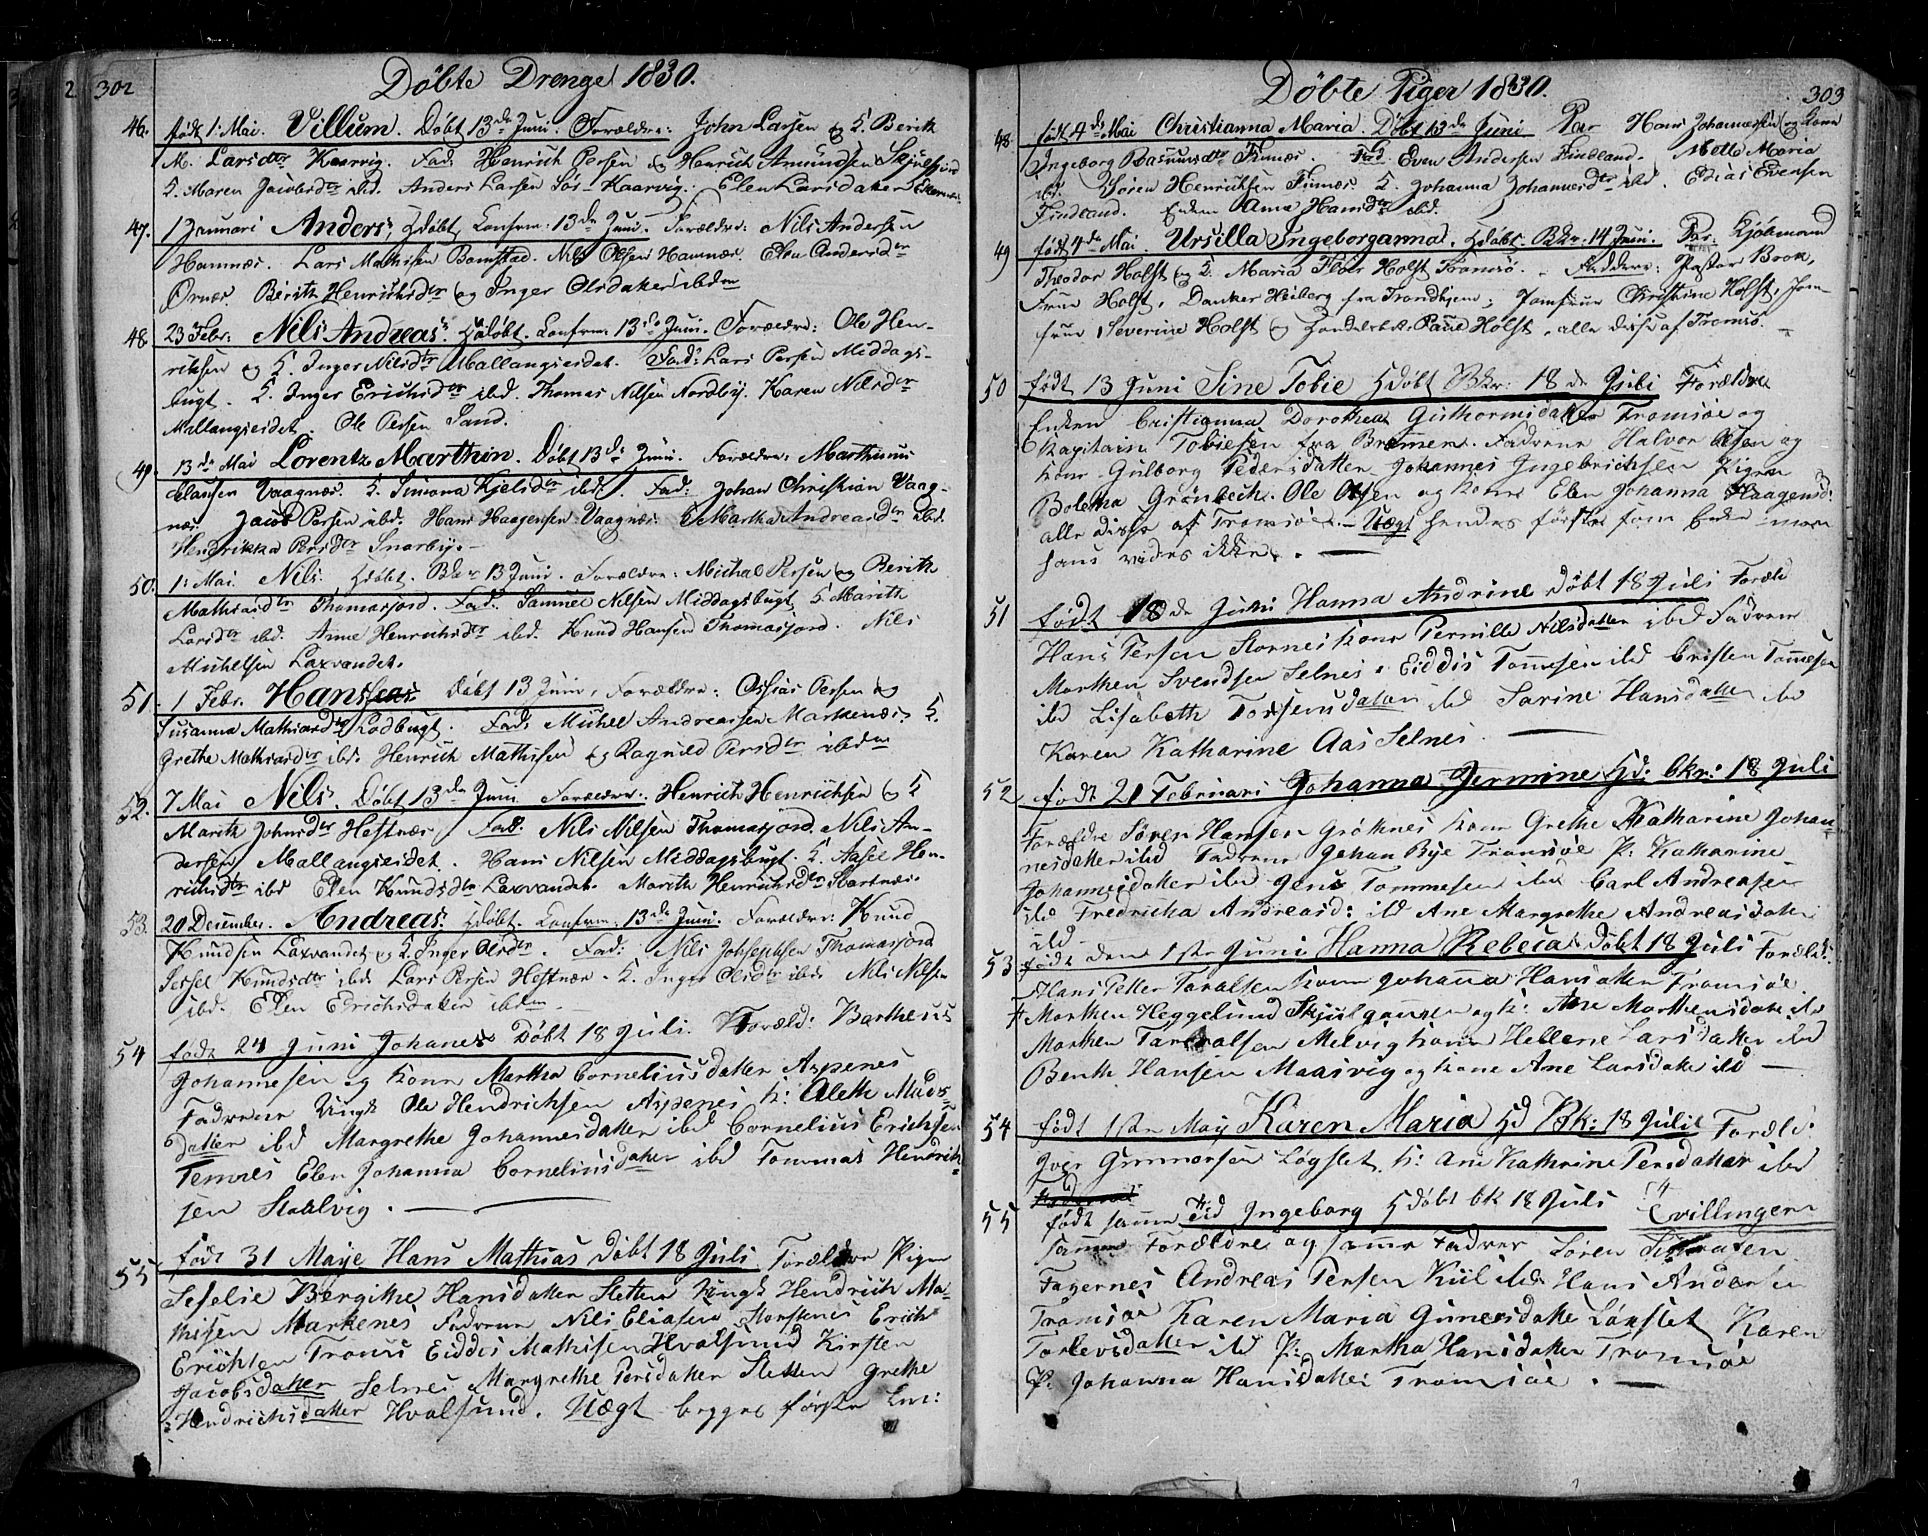 2. 302
Døbte Drenge 1830.
46. født 1: Mai. Villum. Døbt 13de Juni. Forældre: John Larsen og K. Berith
M. Larsdtr Kaarvig. Fad: Henrich Persen og Henrich Amundsen Skjulsfjord
K. Maren Jacobsdtr ibd. Anders Larsen Sør-Kaarvig. Elen Larsdatter
47. 1 Januari Anders, Hdøbt, Confirm: 13de Juni. Forældre: Nils Andersen
Hamnær. Lars Mathisen Bomstad. Nils Olsen Hamnær. Elen Andersdtr
Ørnær Berith Henrichsdtr og Inger Olsdatter ibdm
48. 23 Febr: Nils Andreas. Hdøbt. Confirm. 13de Juni. Forældre: Ole Hen-
richsen og K. Inger Nilsdtr Mallangseidet. Fad: Lars Persen Middags-
bugt. K. Inger Erichsdtr ibd. Thomas Nilsen Nordby. Karen Nilsdtr
Mallangseidet. Ole Persen Sand.
49. 13de Mai Lorentz Marthin. Døbt 13de Juni. Forældre: Marthinus
Clausen Vaagnær. K. Simona Kjelsdtr ibd. Fad: Johan Christian Vaag-
nær Jacob Persen ibd. Hans Haagensen Vaagnær. Martha Andreasdtr ibd.
Hendrikka Persdtr Snarby.
50. 1: Mai. Nils. Hdøbt. Bkr 13 Juni. Forældre: Michal Persen og Berith
Mathiasdtr Thomasjord. Fad: Samuel Nilsen Middagsbugt, K. Marith
Larsdtr ibd. Anne Henrichsdtr ibd. Knud Hansen Thomasjord. Nils
Michelsen Laxvandet.
51. 1 Febr. Hans Døbt 13 Juni, Forældre: Ossias Persen og
Susanna Mathiasdtr Rødbugt. Fad: Michel Andreassen Markenær K.
Grethe Mathiasdtr ibd. Henrich Mathisen og Ragnild Persdtr ibdm
52. 7 Mai Nils. Døbt 13de Juni Forældre: Henrich Henrichsen og K
Marith Johnsdtr Hestnær Fad: Nils Nilsen Thomasjord. Nils An-
dersen Mallangseidet. Hans Nilsen Middagsbugt. K. Aasel Hen-
richsdtr ibd Elen Knudsdtr Laxvandet. Marith Henrichsdtr Slartnær
53. 20 December. Andreas. Hdøbt. Confirm. 13de Juni. Forældre: Knud
Knudsen Laxvandet og K. Inger Olsdtr. Fad: Nils Johsephsen Thomasjord
Sessel Knudsdtr ibd. Lars Persen Hestnær. K. Inger Olsdtr ibd. Nils Nilsen
ibd. Elen Erichsdatter ibdm
54 født 24 Juni Johanes Døbt 18 Juli. Foræld: Bartheus
Johannesen og Kone Martha Corneliusdatter Aspenes
Faderne Ungk Ole Hendrichsen Aspenes k: Olethe Mads-
datter ibd Margrethe Johannesdatter ibd Cornelius Erichsen
Temnes Elen Johanna Corneliusdatter ibd Tommas Hendrich-
sen Staalvig.
55 født 31 Maje Hans Mathias Døbt 18 Juli. Forældre Pigen
Seselie Bergithe Hansdatter Sletten Ungk Hendrich Ma-
thisen Markenes Fadrene Nils Eliasen Storstenes Erich
Erichsen Tromsø Eiddis Mathisen Hvalsund Kirsten
Jacobsdatter Selnes Margrethe Persdatter Sletten Grethe
Hendrichsdatter Hvalsund. Uægt begges første Lei:
303
Døbte Piger 1830.
48 født 4de Mai Christianna Maria. Døbt 13de Juni Par Hans Johannesen og Kone
Ingeborg Rasmusdtr Finnær. Fad. Even Andersen Findland. Mette Maria
ibd. Søren Henrichsen Finnær. K. Johanna Johannesdtr ibd. Esaias Evensen
Findland. Enken Anna Hansdtr ibd.
49 født 4de Mai. Ursilla Ingeborganna. Hdøbt. Bkr. 14 Juni. Par. Kjøbmand
Theodor Holst og K. Maria Flor Holst Tromsø. Faddere: Pastor Brok,
Frue Holst, Danker Heiberg fra Trondhjem, Jomfrue Christine Holst, Jom
frue Severine Holst og Handelsbet. Paul Holst, alle disse af Tromsø.
50 født 13 Juni Sine Tobie Hdøbt Bkr: 18de Juli Forældre
Enken Cristianna Dorothea Guthormsdatter Tromsøe og
Kapitain Tobiesen fra Bremen. Fadrene Halvor Olsen og
kone Gulborg Pedersdatter Johannes Ingebrichsen Pigen
Boletha Grønbech. Ole Olsen og kone Elen Johanna Haagensd:
alle disse af Tromsøe. Uægt hendes første som Enke men
hans vides ikke.
51 født 18de Juni Hanna Andrine døbt 18 Juli Foræld
Hans Persen Stornes kone Pernille Nilsdatter ibd Fadrene
Morthen Svendsen Selnes, Eiddis Tommesen ibd Cristen Tommesen
ibd Lisabeth Torstensdatter ibd Sarine Hansdatter ibd
Karen Katharine Aas Selnes.
52 født 21 Februari Johanna Jermine Hd: bkr: 18 Juli
Forældre Søren Hansen Grøtnes kone Grethe Katharine Johan-
nesdatter ibd Fadrene Johan Bye Tromsøe P: Katharine
Johannesdatter ibd Jens Tommesen ibd Carl Andreasen
ibd Fredricha Andreasd: ibd Ane Margrethe Andreasdatter
ibd
53 født den 1ste Juni Hanna Rebeca døbt 18 Juli Foræld:
Hans Petter Taralsen kone Johanna Hansdatter Tromsøe.
F Morthen Heggelund Skjulgammen og k: Ane Morthensdatter ibd
Morthen Taralsen Melvig kone Hellene Larsdatter ibd
Benth Hansen Maasvig og kone Ane Larsdatter ibd
54 født 1ste May Karen Maria Hd Bk: 18 Juli Foræld:
Iver Gunnersen Løgslet, k: Ane Kathrine Persdatter ibd
55 født samme tid Ingeborg Hdøbt bk 18 Juli Tvillinger
samme Forældre og samme Fadrer Søren
Fagernes Andreas Persen Kiil ibd Hans Andersen
Tromsøe Karen Maria Gunersdatter Lønslet Karen
Torlevsdatter ibd P: Martha Hansdatter Tromsøe
P: Johanna Hansdatter Tromsøe.